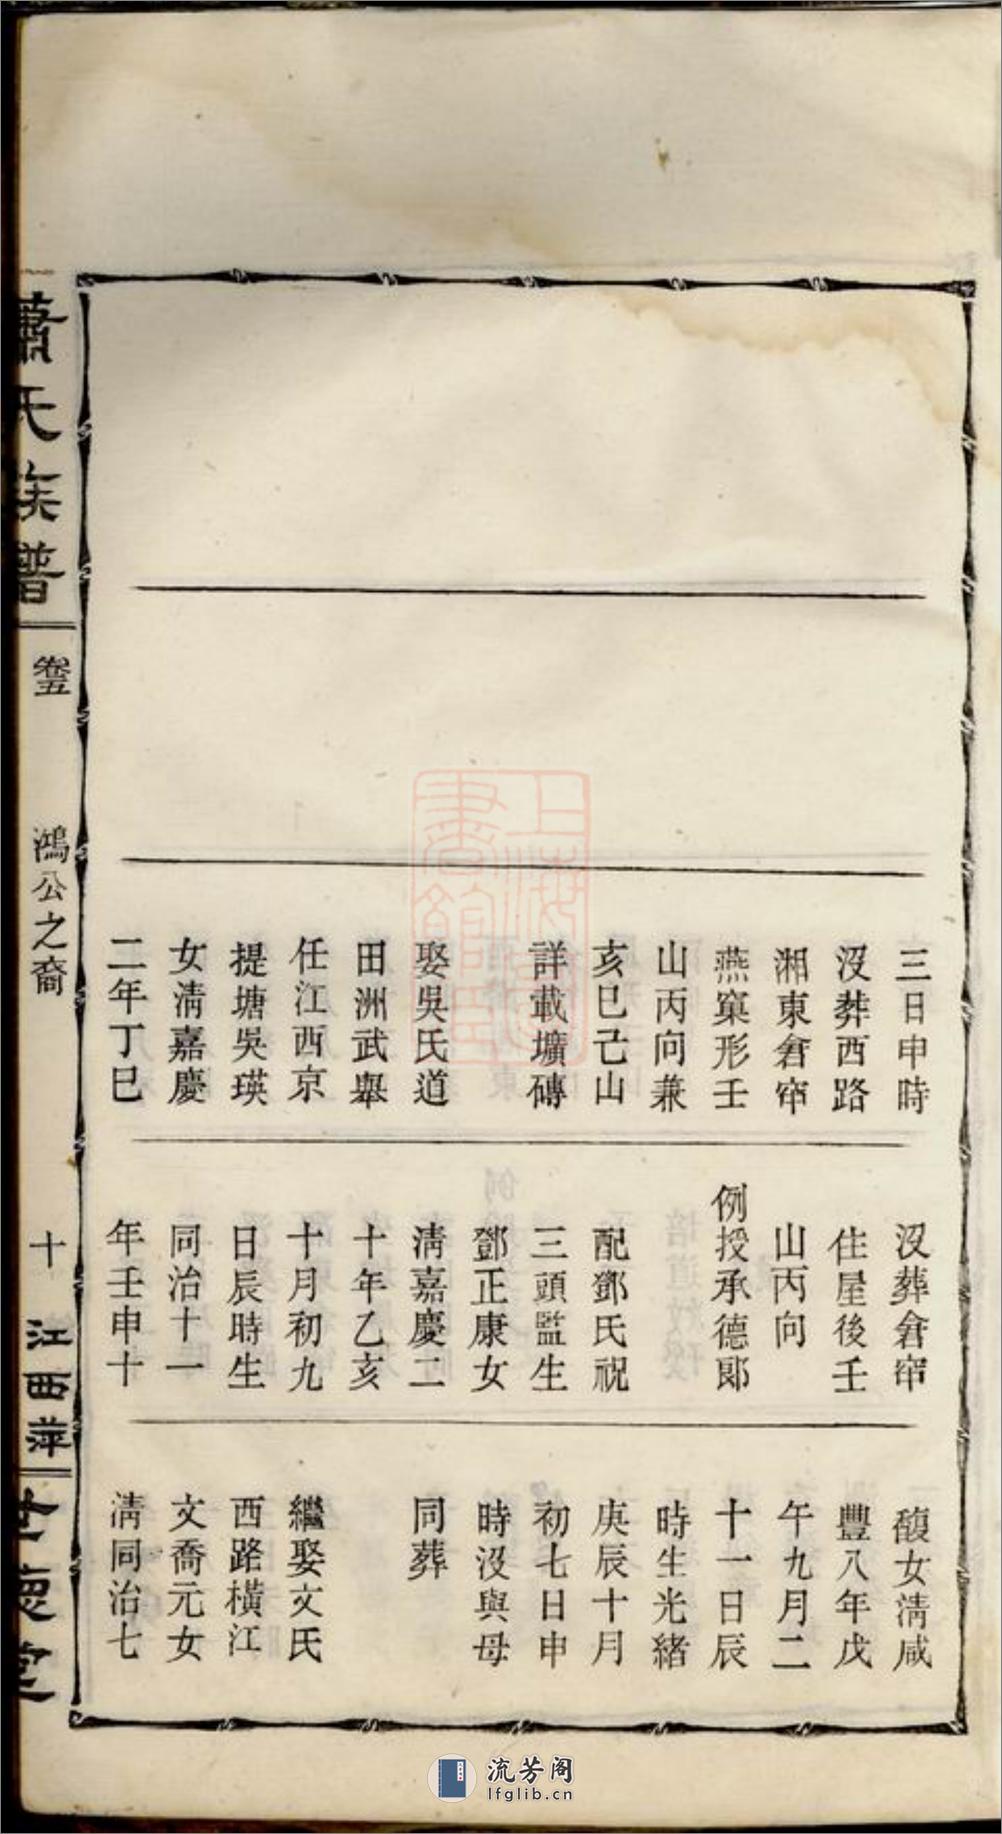 三日申時
沒葬西路
湘東倉窂
燕窠形壬
山丙向兼
亥巳己山
詳載壙磚
娶吳氏道
田洲武舉
任江西京
提塘吳瑛
女淸嘉慶
二年丁巳
沒葬倉窂
住屋後壬
山丙向
例授承德郞
配鄧氏祝
三頭監生
鄧正康女
淸嘉慶二
十年乙亥
十月初九
日辰時生
同治十一
年壬申十
馥女淸咸
豐八年戊
午九月二
十一日辰
時生光緒
庚辰十月
初七日申
時沒與母
同葬
繼娶文氏
西路橫江
文喬元女
淸同治七
蕭氏族譜
卷五
鴻公之裔
十
江西萍
世德堂
上海圖書館藏
流芳阁
lfglib.cn